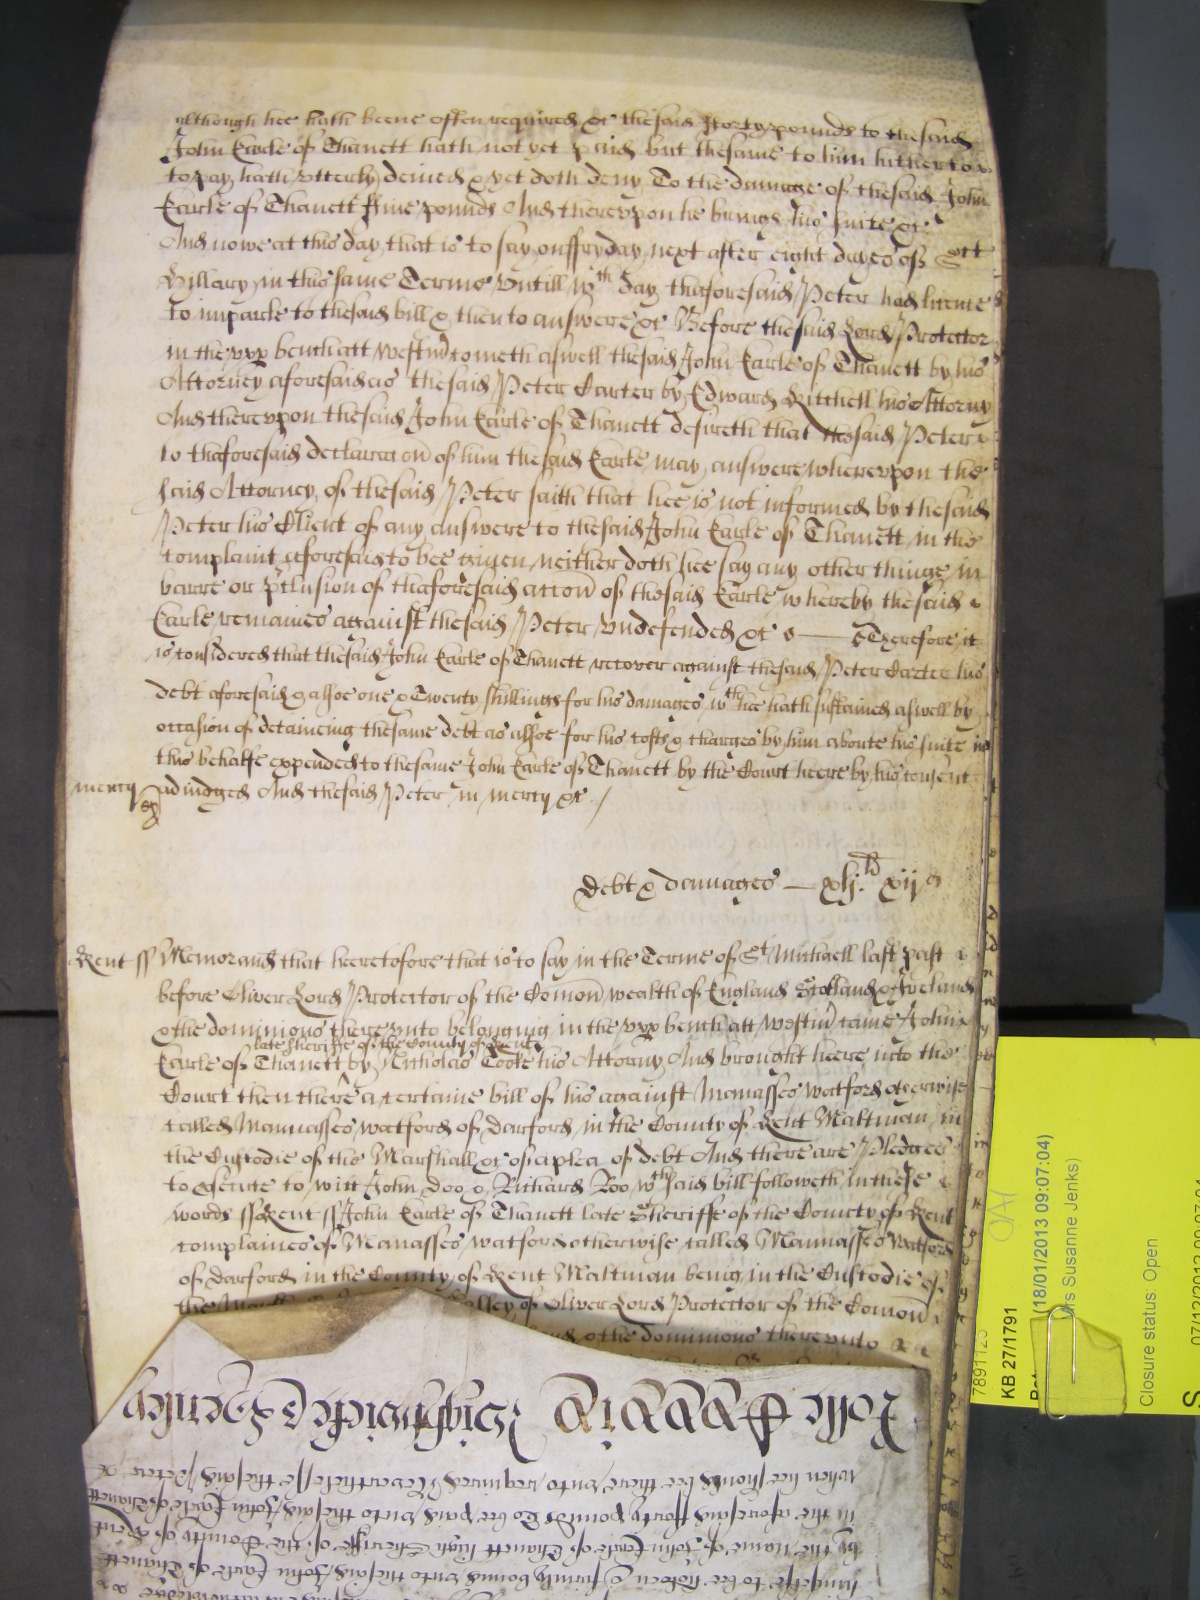 although hee hath beene often required &c the said fforty pounds to the said
John Earle of Thanett hath not yet paid but the same to him hitherto
to pay hath vtterly denied & yet doth deny To the damage of the said John
Earle of Thanett ffive pounds And therevpon he brings his suite &c
And nowe at this day that is to say on ffryday next after eight dayes of St
Hillary in this same Terme vntill wch day thaforesaid Peter had licence
to imparle to the said bill & then to answere &c Before the said Lord Protector
in the vpp bench att Westmr cometh aswell the said John Earle of Thanett by his
Attorney aforesaid as the said Peter Carter by Edward Kitchell his Attorny
And therevpon the said John Earle of Thanett desireth that the said Peter
to thaforesaid declaracon of him the said Earle may answere wherevpon the
said Attorney of the said Peter saith that hee is not informed by the said
Peter his Client of any answere to the said John Earle of Thanett in the
complaint aforesaid to bee given neither doth hee say any other thinge in
barre or p'clusion of thaforesaid accon of the said Earle whereby the said
Earle remaines against the said Peter vndefended &c Therefore it
is considered that the said John Earle of Thanett recover against the said Peter Carter his
debt aforesaid & alsoe one & Twenty shillings for his damages wch hee hath susteined aswell by
occasion of deteineing the same debt as alsoe for his costs & charges by him aboute his suite in
this behalfe expended to the same John Earle of Thanett by the Court heere by his consent
mercy adiudged And the said Peter in mercy &c
Debt & damages — xlj li xij d
Kent ss Memorand that heeretofore that is to say in the Terme of St Michaell last past
before Oliver Lord Protector of the Comon wealth of England Scotland & Ireland
& the dominions there vnto belonging in the vpp bench att Westmr came John
late Sheriffe of the County of Kent
Earle of Thanett by Nicholas Cooke his Attorny And brought heere into the
Court then there a certaine bill of his against Manasses Watford otherwise
called Mannasses Watford of Darford in the County of Kent Maltman in
the Custodie of the Marshall &c of a plea of debt And there are Pledges
to p'secute to witt John Doo & Richard Roo wch said bill followeth in these
words ss Kent ss John Earle of Thanett late Sheriffe of the County of Kent
complaines of Manasses Watford otherwise called Mannasses Watford
of Darford in the County of Kent Maltman being in the Custodie of
the of Oliver Lord Protector of the Comon
& the dominions there vnto
7891123
KB 27/1791
(18/01/2013 09:07:04)
Mrs Susanne Jenks)
Closure status: Open
himselfe to bee holden & firmly bound vnto the said John Earle of Thanett
by the name of John Earle of Thanett high Sheriffe of the County of Kent
in the aforesaid fforty pounds To bee paid vnto the said John Earle of Thanett
when hee should bee there vnto required Neverthelesse the said Peter &c
Rolle Wightwicke &